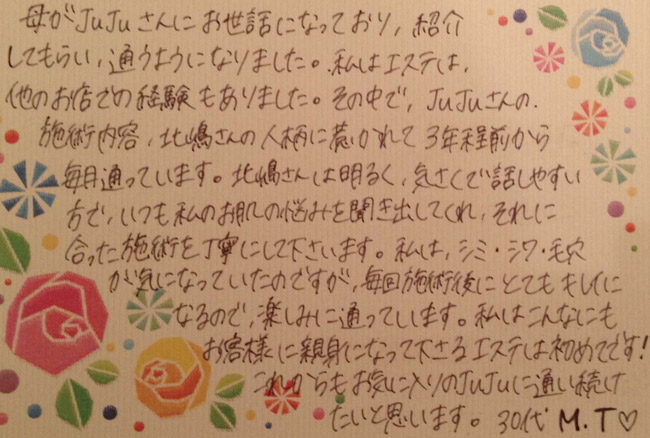 母がJuJuさんにお世話になっており、紹介
してもらい、通うようになりました。私はエステは、
他のお店での経験もありました。その中で、JuJuさんの、
施術内容、北嶋さんの人柄に惹かれて3年程前から
毎月通っています。北嶋さんは明るく、気さくで話しやすい
方で、いつも私のお肌の悩みを聞き出してくれ、それに
合った施術を丁寧にして下さいます。私は、シミ・シワ・毛穴
が気になっていたのですが、毎回施術後にとてもキレイに
なるので、楽しみに通っています。私はこんなにも
お客様に親身になって下さるエステは初めてです!
これからもお気に入りのJuJuに通い続け
たいと思います。30代 M.T♡